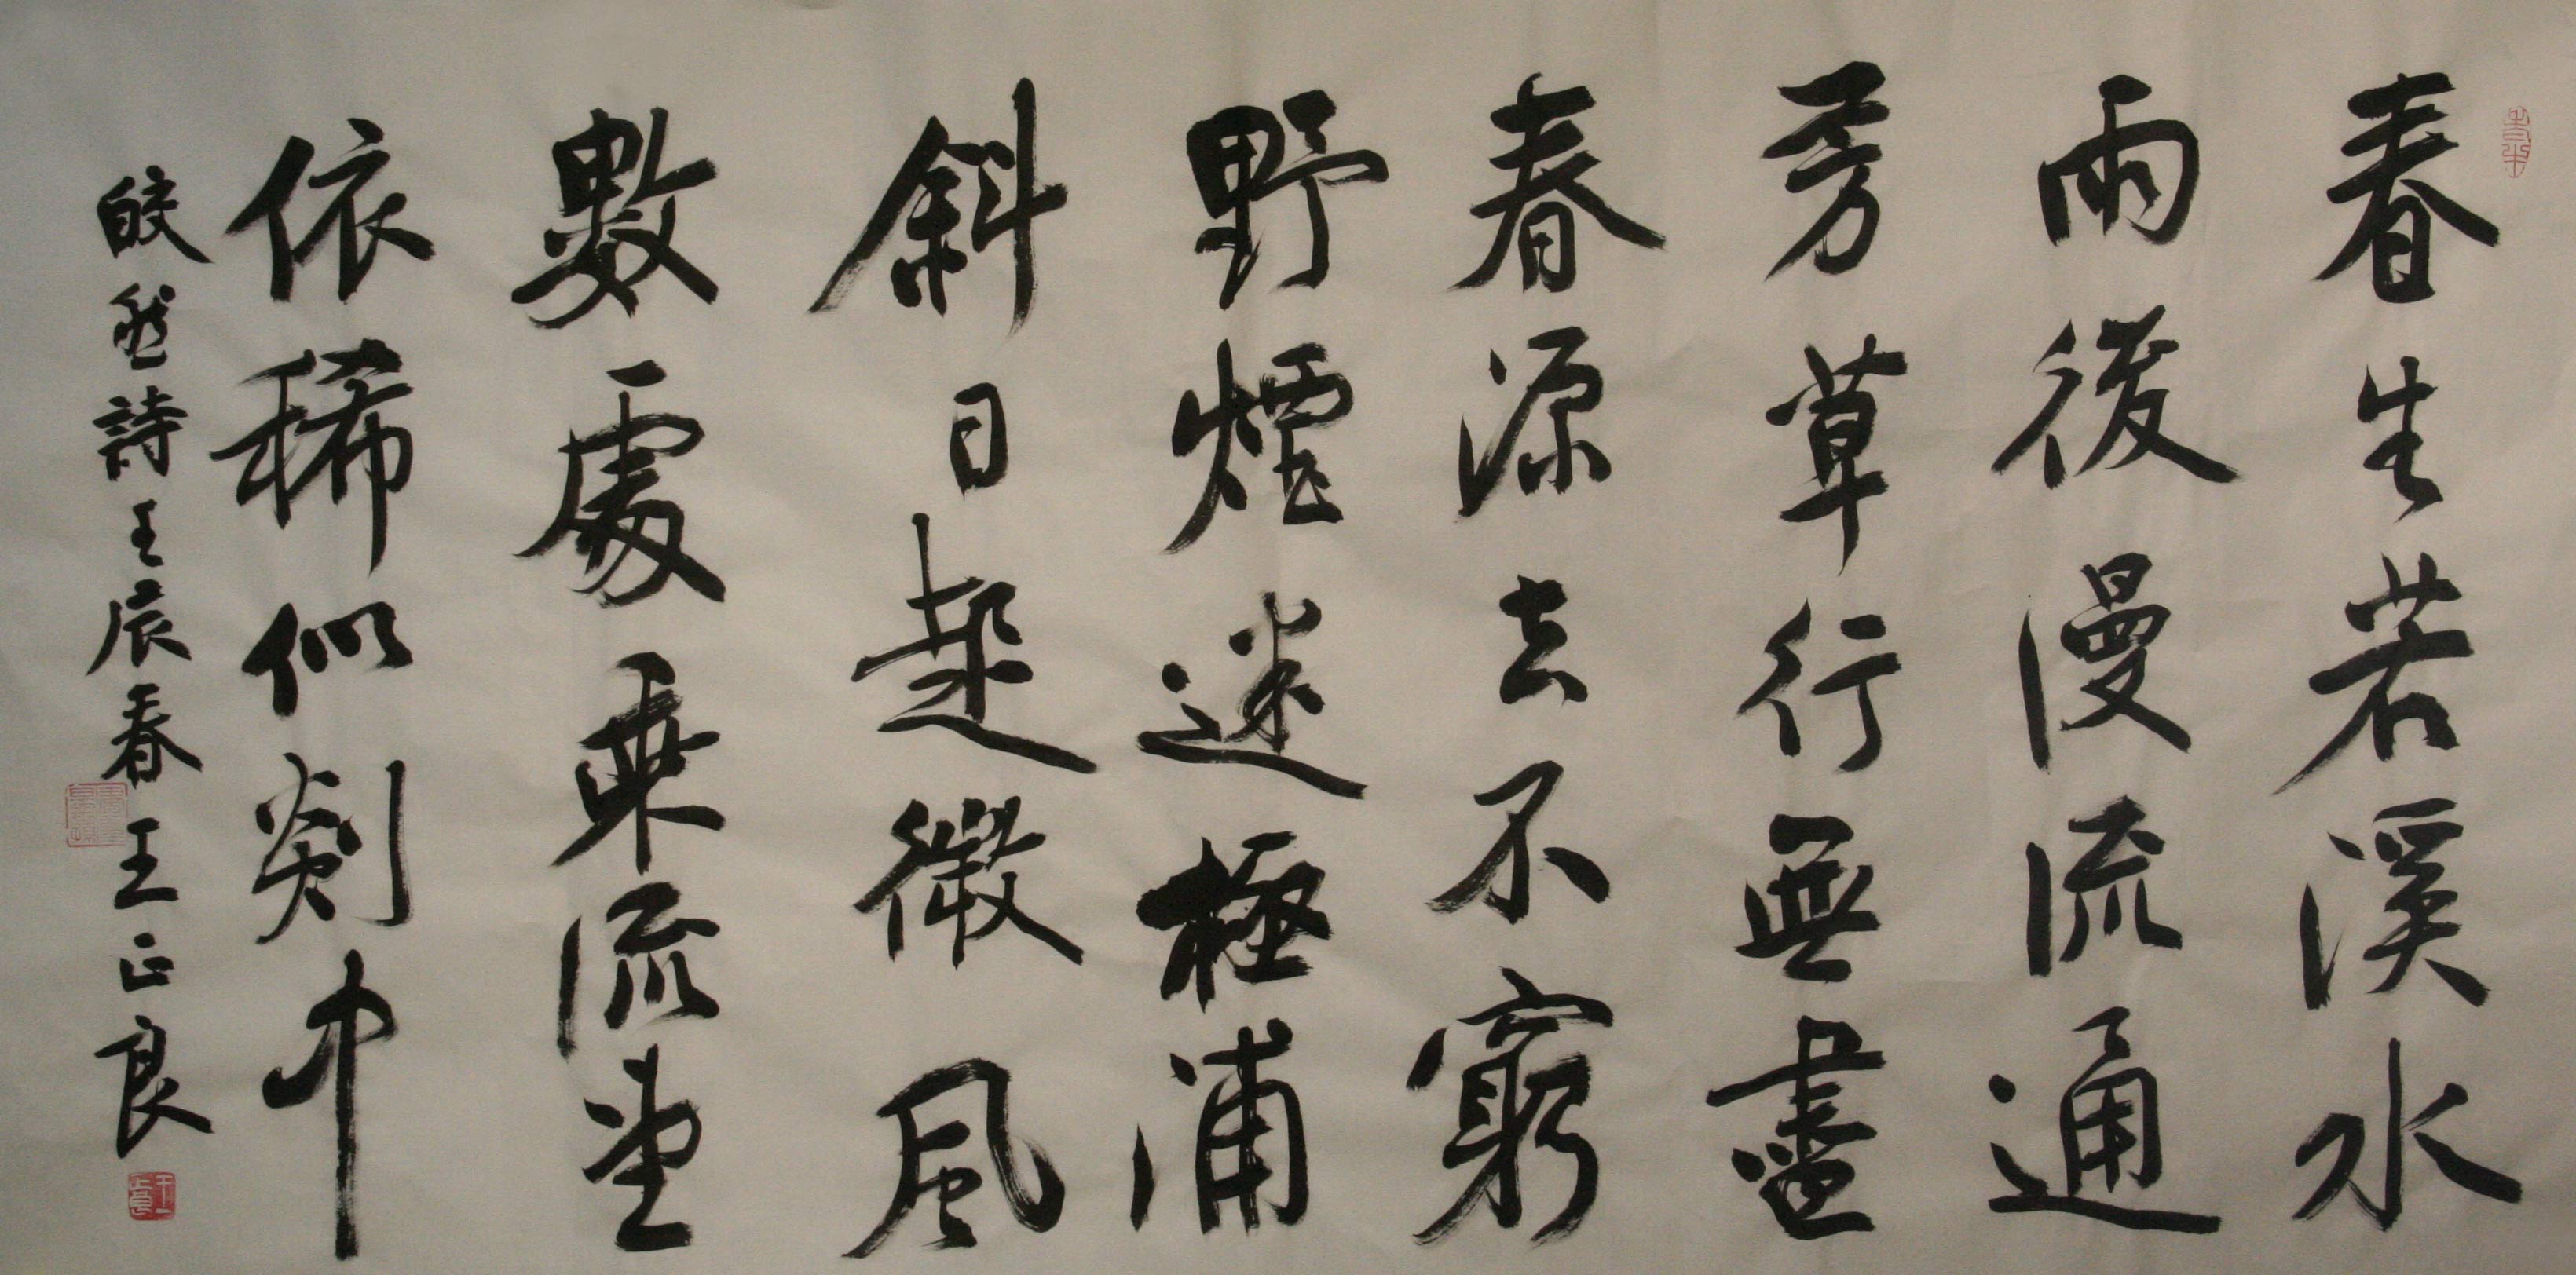 春生若溪水
雨後漫流通
芳草行無盡
春源去不窮
野煙迷極浦
斜日起微風
數處乘流望
依稀似剡中
皎然詩壬辰春王正良